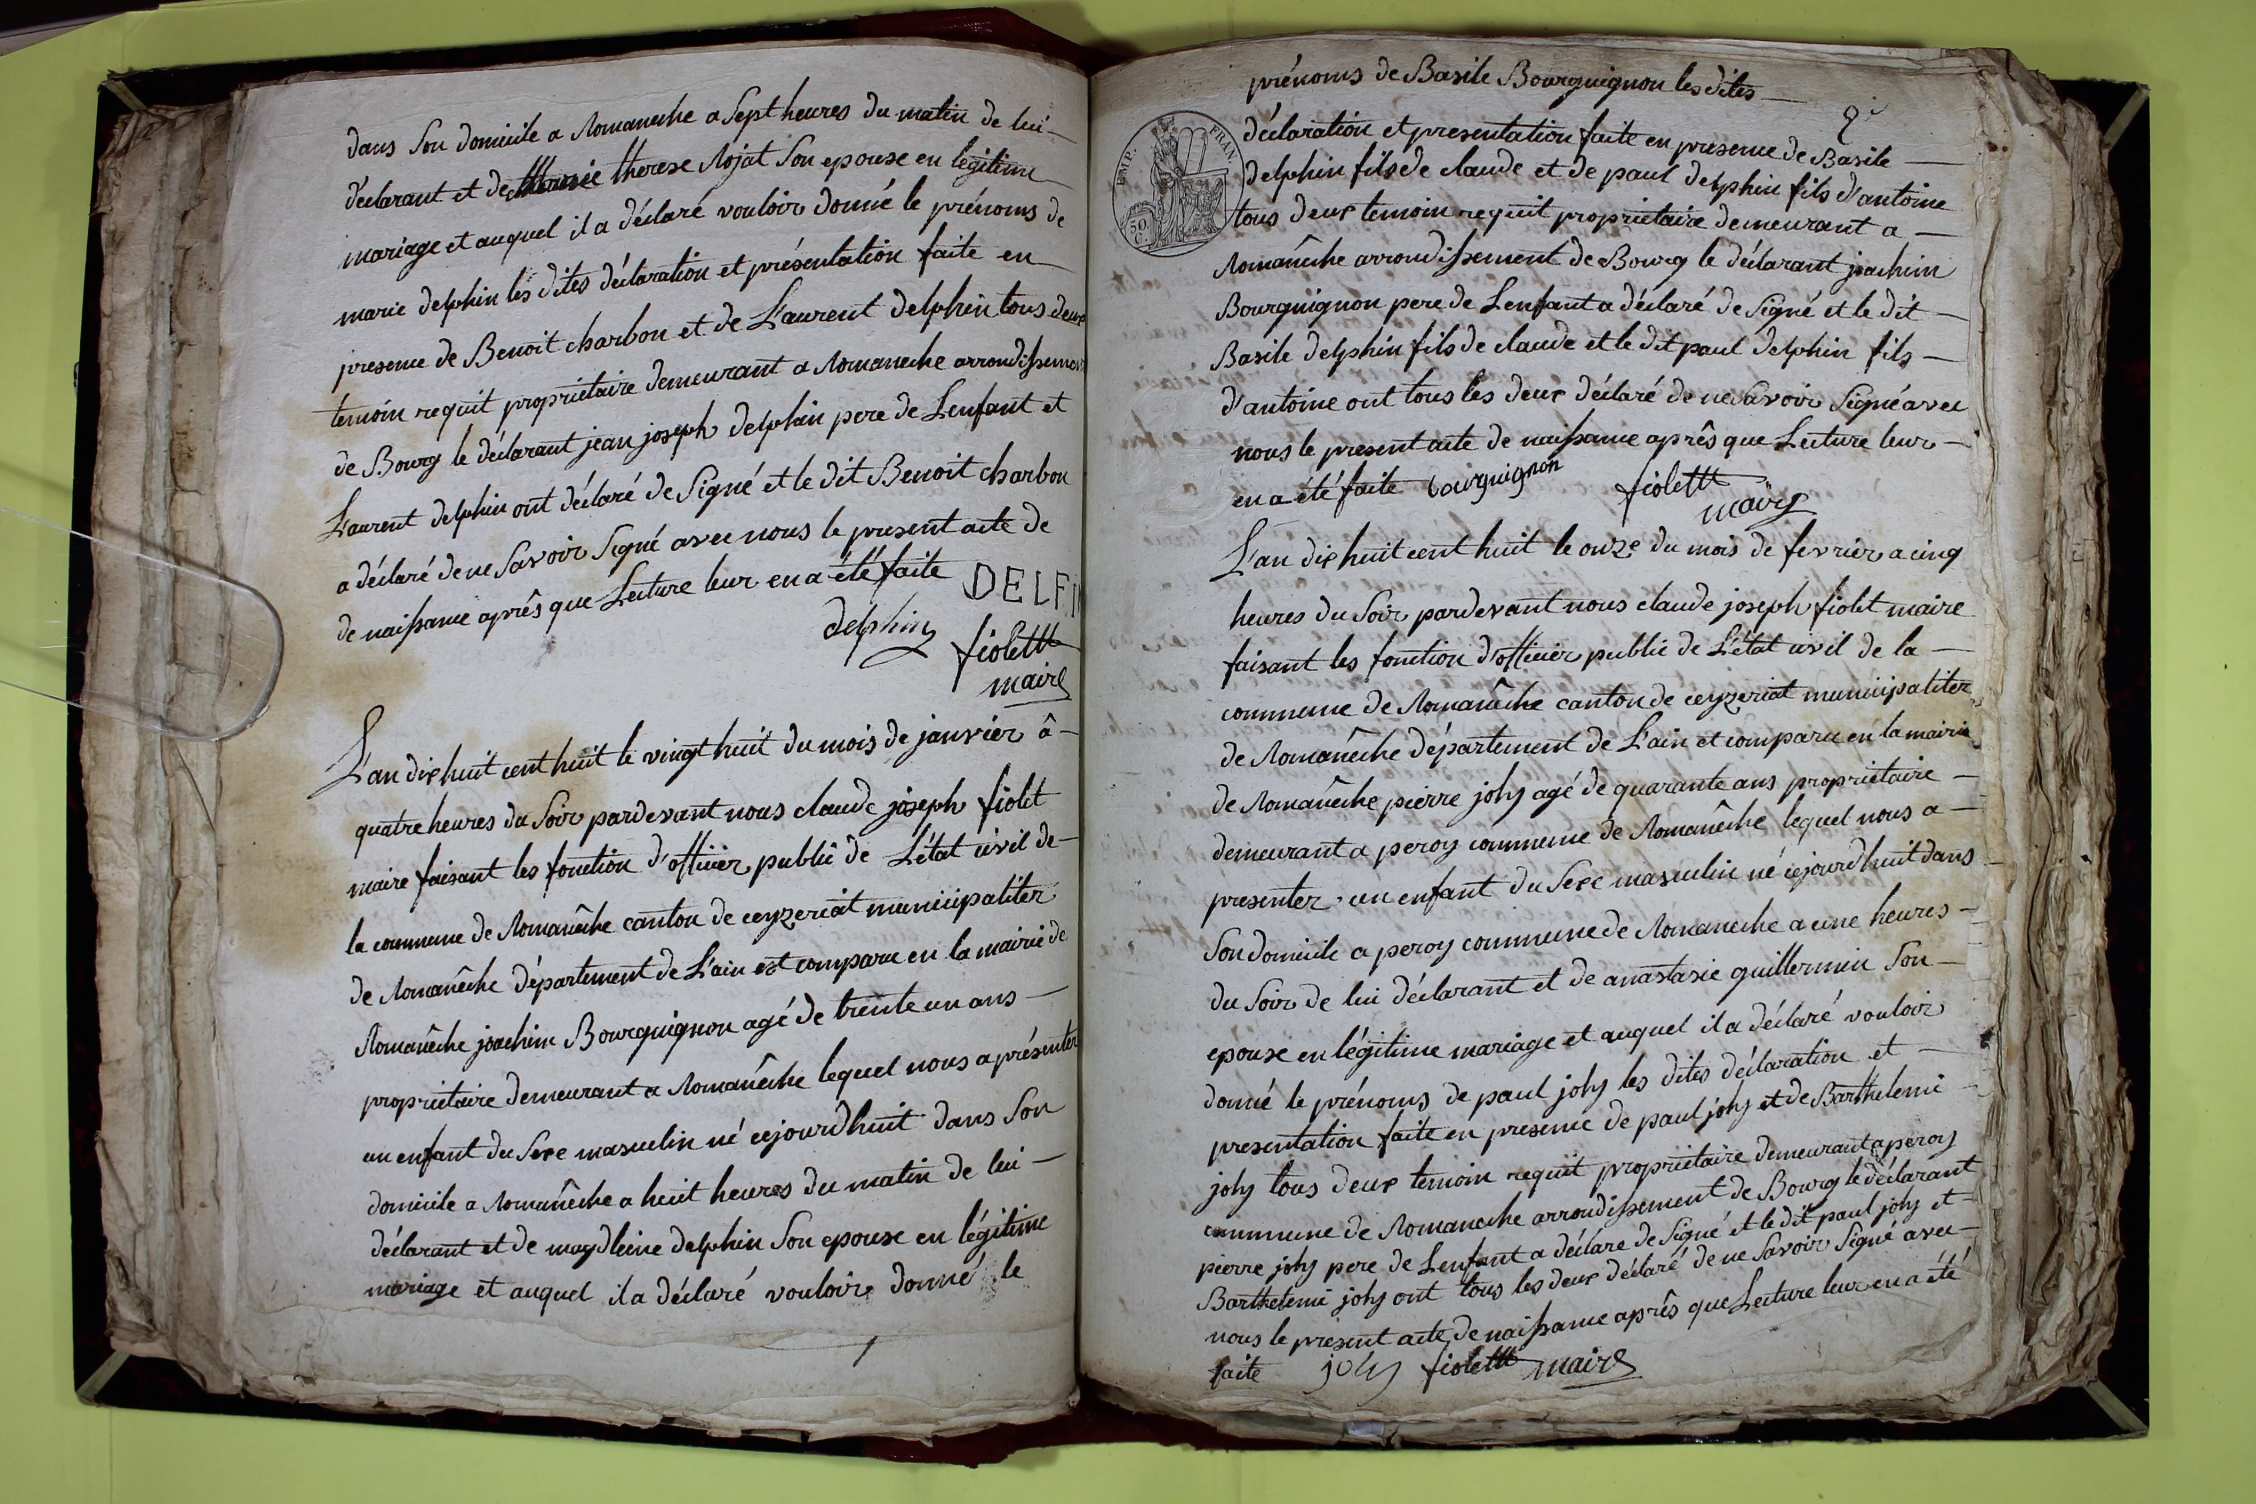 dans Son domicile a Romaneche a Sept heures du matin de lui
déclarant et de therese Rojat Son epouse en légitime
mariage et auquel il a déclaré vouloir donné le prénoms de
marie delphin les dites déclaration et présentation faite en
presence de Benoit charbon et de Laurent delphin tous deux
temoin requit propriétaire demeurant a Romaneche arrondissement
de Bourg le déclarant jean joseph delphin pere de Lenfant et
Laurent delphin ont déclaré de Signé et le dit Benoit charbon
a déclaré de ne Savoir Signé avec nous le present acte de
de naissance aprês que Lecture leur en a été faite DELFIN
delphin
fiolet
maire
L'an dix huit cent huit le vingt huit du mois de janvier â
quatre heures du Soir pardevant nous claude joseph fiolet
maire faisant les fonction d'officier public de L'état civil de
la commune de Romanêche canton de ceyzeriat municipaliter
de Romanêche département de L'ain est comparu en la mairie de
Romanêche joachim Bourguignon agé de trente un ans
propriétaire demeurant a Romanêche lequel nous a présenter
un enfant du Sexe masculin né cejourdhuit dans Son
domicile a Romanêche a huit heures du matin de lui
déclarant et de magdleine delphin Son epouse en légitime
mariage et auquel il a déclaré vouloir donné le
1
prénoms de Basile Bourguignon les dites
2
EMP. FRAN.
50 C.
déclaration et presentation faite en presence de Basile
delphin fils de claude et de paul delphin fils d'antoine
tous deux temoin requit proprietaire demeurant a
Romanêche arrondissement de Bourg le déclarant joachim
Bourguignon pere de Lenfant a déclaré de Signé et le dit
Basile delphin fils de claude et le dit paul delphin fils
d'antoine ont tous les deux déclaré de ne Savoir Signé avec
nous le present acte de naissance aprês que Lecture leur
en a été faite bourguignon fiolet
maire
L'an dix huit cent huit le onze du mois de fevrier a cinq
heures du Soir pardevant nous claude joseph fiolet maire
faisant les fonction d'officier public de L'état civil de la
commune de Romanêche canton de ceyzeriat municipaliter
de Romanêche département de L'ain et comparu en la mairie
de Romanêche pierre joly agé de quarante ans propriétaire
demeurant a peroy commune de Romanêche lequel nous a
presenter un enfant du Sexe masculin né cejourdhuit dans
Son domicile a peroy commune de Romaneche a une heures
du Soir de lui déclarant et de anastasie guillermin Son
epouse en légitime mariage et auquel il a déclaré vouloir
donné le prénoms de paul joly les dites déclaration et
presentation faite en presence de paul joly et de Barthelemi
joly tous deux temoin requit propriétaire demeurant a peroy
commune de Romaneche arrondissement de Bourg le déclarant
pierre joly pere de Lenfant a déclare de Signé et le dit paul joly et
Barthelemi joly ont tous les deux déclaré de ne Savoir Signé avec
nous le present acte de naissance aprês que Lecture leur en a été
faite joly fiolet maire